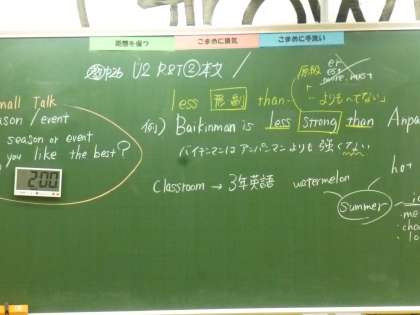 距離を保つ
こまめに換気
こまめに手洗い
P26 U2 R&T② 本文
原級
er
est
more, most
less 形副 than ~ 「~よりも…でない」
例) Baikinman is less strong than Anpa
バイキンマンはアンパンマンよりも強くない
mall Talk
ason / event
season or event
you like the best?
2:00
Classroom → 3年英語
watermelon
hot
Summer